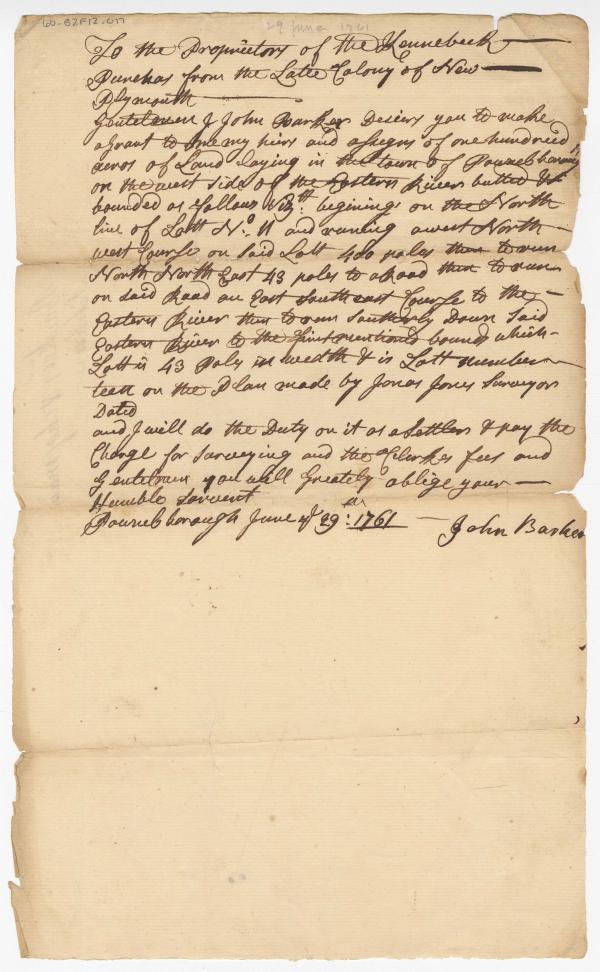 60-B2F12-017
29 June 1761
To the Proprietors of the Kennebeck
Purches from the Late Colony of New
Plymouth
Gentelmen I John Barker Desiers you to make
a Grant to me my heirs and assigns of one hundred
acros of Land laying in the town of Pownelborough
on the west side of the Eastern River butted &
bounded as follows Viz begining on the North
line of Lott No. 11 and runing a west North
west Course on said Lott 400 poles then to run
North North East 43 poles to a Road then to run
on said Road an East South east Course to the
Eastern River then to run Southerly Down Said
Eastern River to the first mentiond bounds which
Lott is 43 Poles in wedth & is Lott number
teen on the Plan made by Jonas Jones Surveyor
Dated
and I will do the Duty on it as a Settler & pay the
Charge for Surveying and the Clarkes fees and
Gentelmen you will Greately oblige your
Humble Servent
Pownelborough June 29 1761 John Barker